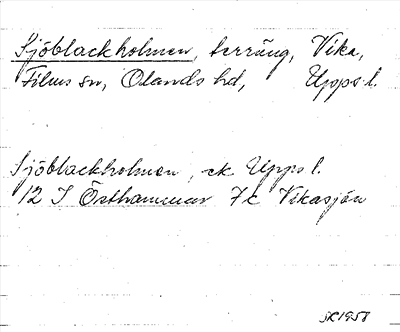 Sjöblackholmen, terräng, Vika,
Films sn, Olands hd, Upps l.
Sjöblackholmen, ek. Upps l.
12 I Östhammar 7c Vikasjön
SK1958